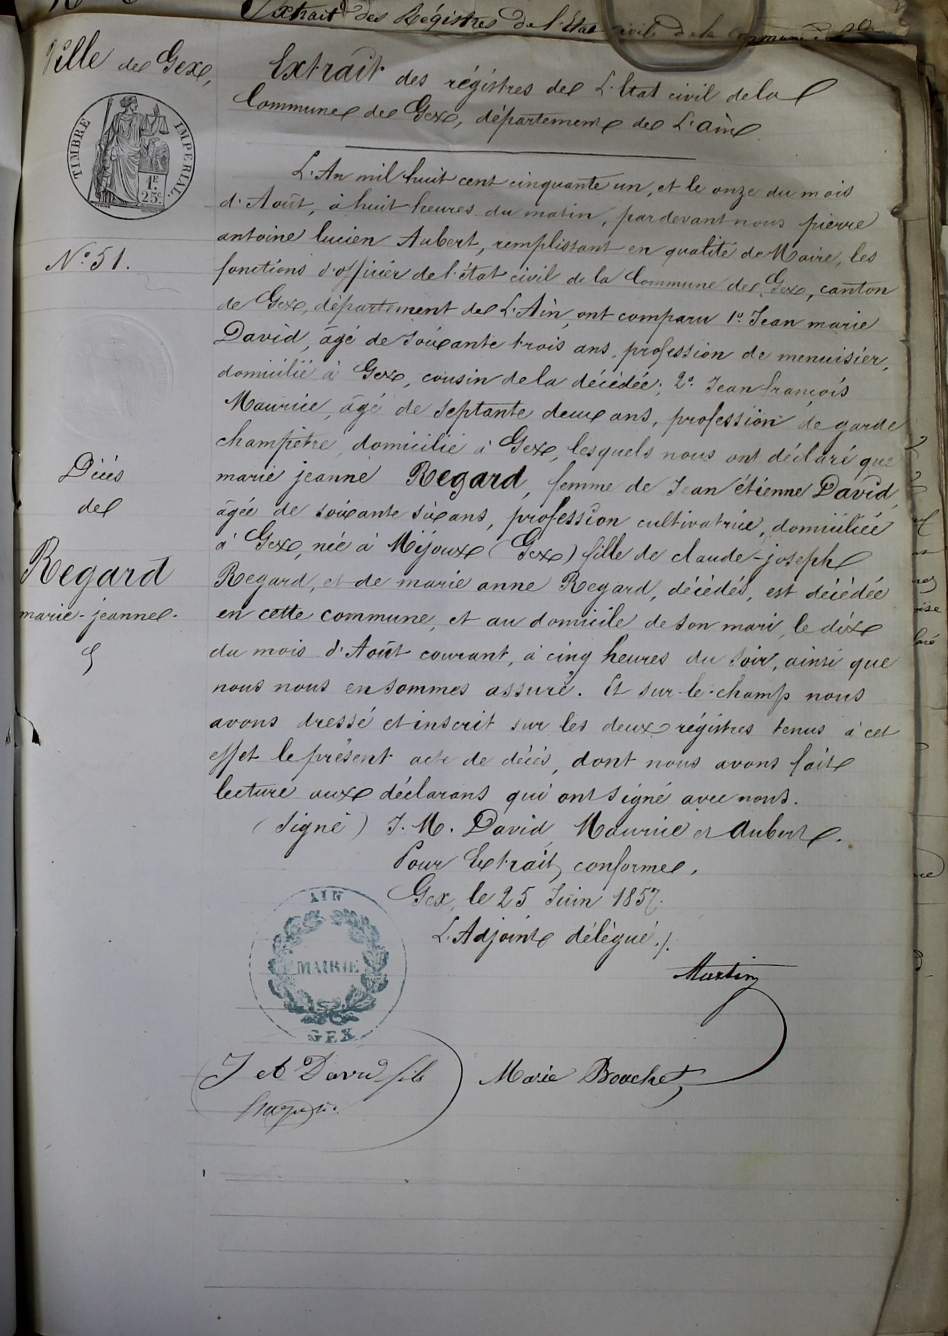 Extrait des Régistres de l'Etat civil de la Commune de
Ville de Gex,
Extrait des régistres de L'Etat civil de la
Commune de Gex, département de L'ain
TIMBRE IMPERIAL
1F.
25c.
L'An mil huit cent cinquante un, et le onze du mois
d'Août, à huit heures du matin, par devant nous pierre
antoine lucien Aubert, remplissant en qualité de Maire, les
N.° 51.
fonctions d'officier de l'état civil de la Commune de Gex, canton
de Gex, département de L'Ain, ont comparu 1.° Jean marie
David, âgé de soixante trois ans, profession de menuisier,
domicilié à Gex, cousin de la décédée; 2.° Jean françois
Maurice, âgé de septante deux ans, profession de garde
champêtre, domicilié à Gex, lesquels nous ont déclaré que
Décès
marie jeanne Regard, femme de Jean étienne David,
de
âgée de soixante six ans, profession cultivatrice, domiciliée
à Gex, née à Mijoux (Gex) fille de claude-joseph
Regard
Regard, et de marie anne Regard, décédés, est décédée
marie-jeanne.
en cette commune, et au domicile de son mari, le dix
du mois d'Août courant, à cinq heures du soir, ainsi que
nous nous en sommes assuré. Et sur-le-champ nous
avons dressé et inscrit sur les deux régistres tenus à cet
effet le présent acte de décès, dont nous avons fait
lecture aux déclarans qui ont signé avec nous.
(signé) J. M. David, Maurice et Aubert.
Pour Extrait conforme,
Gex, le 25 Juin 1857.
L'Adjoint délégué.
AIN
MAIRIE
GEX
Martin
J et David fils
Marie Bouchet